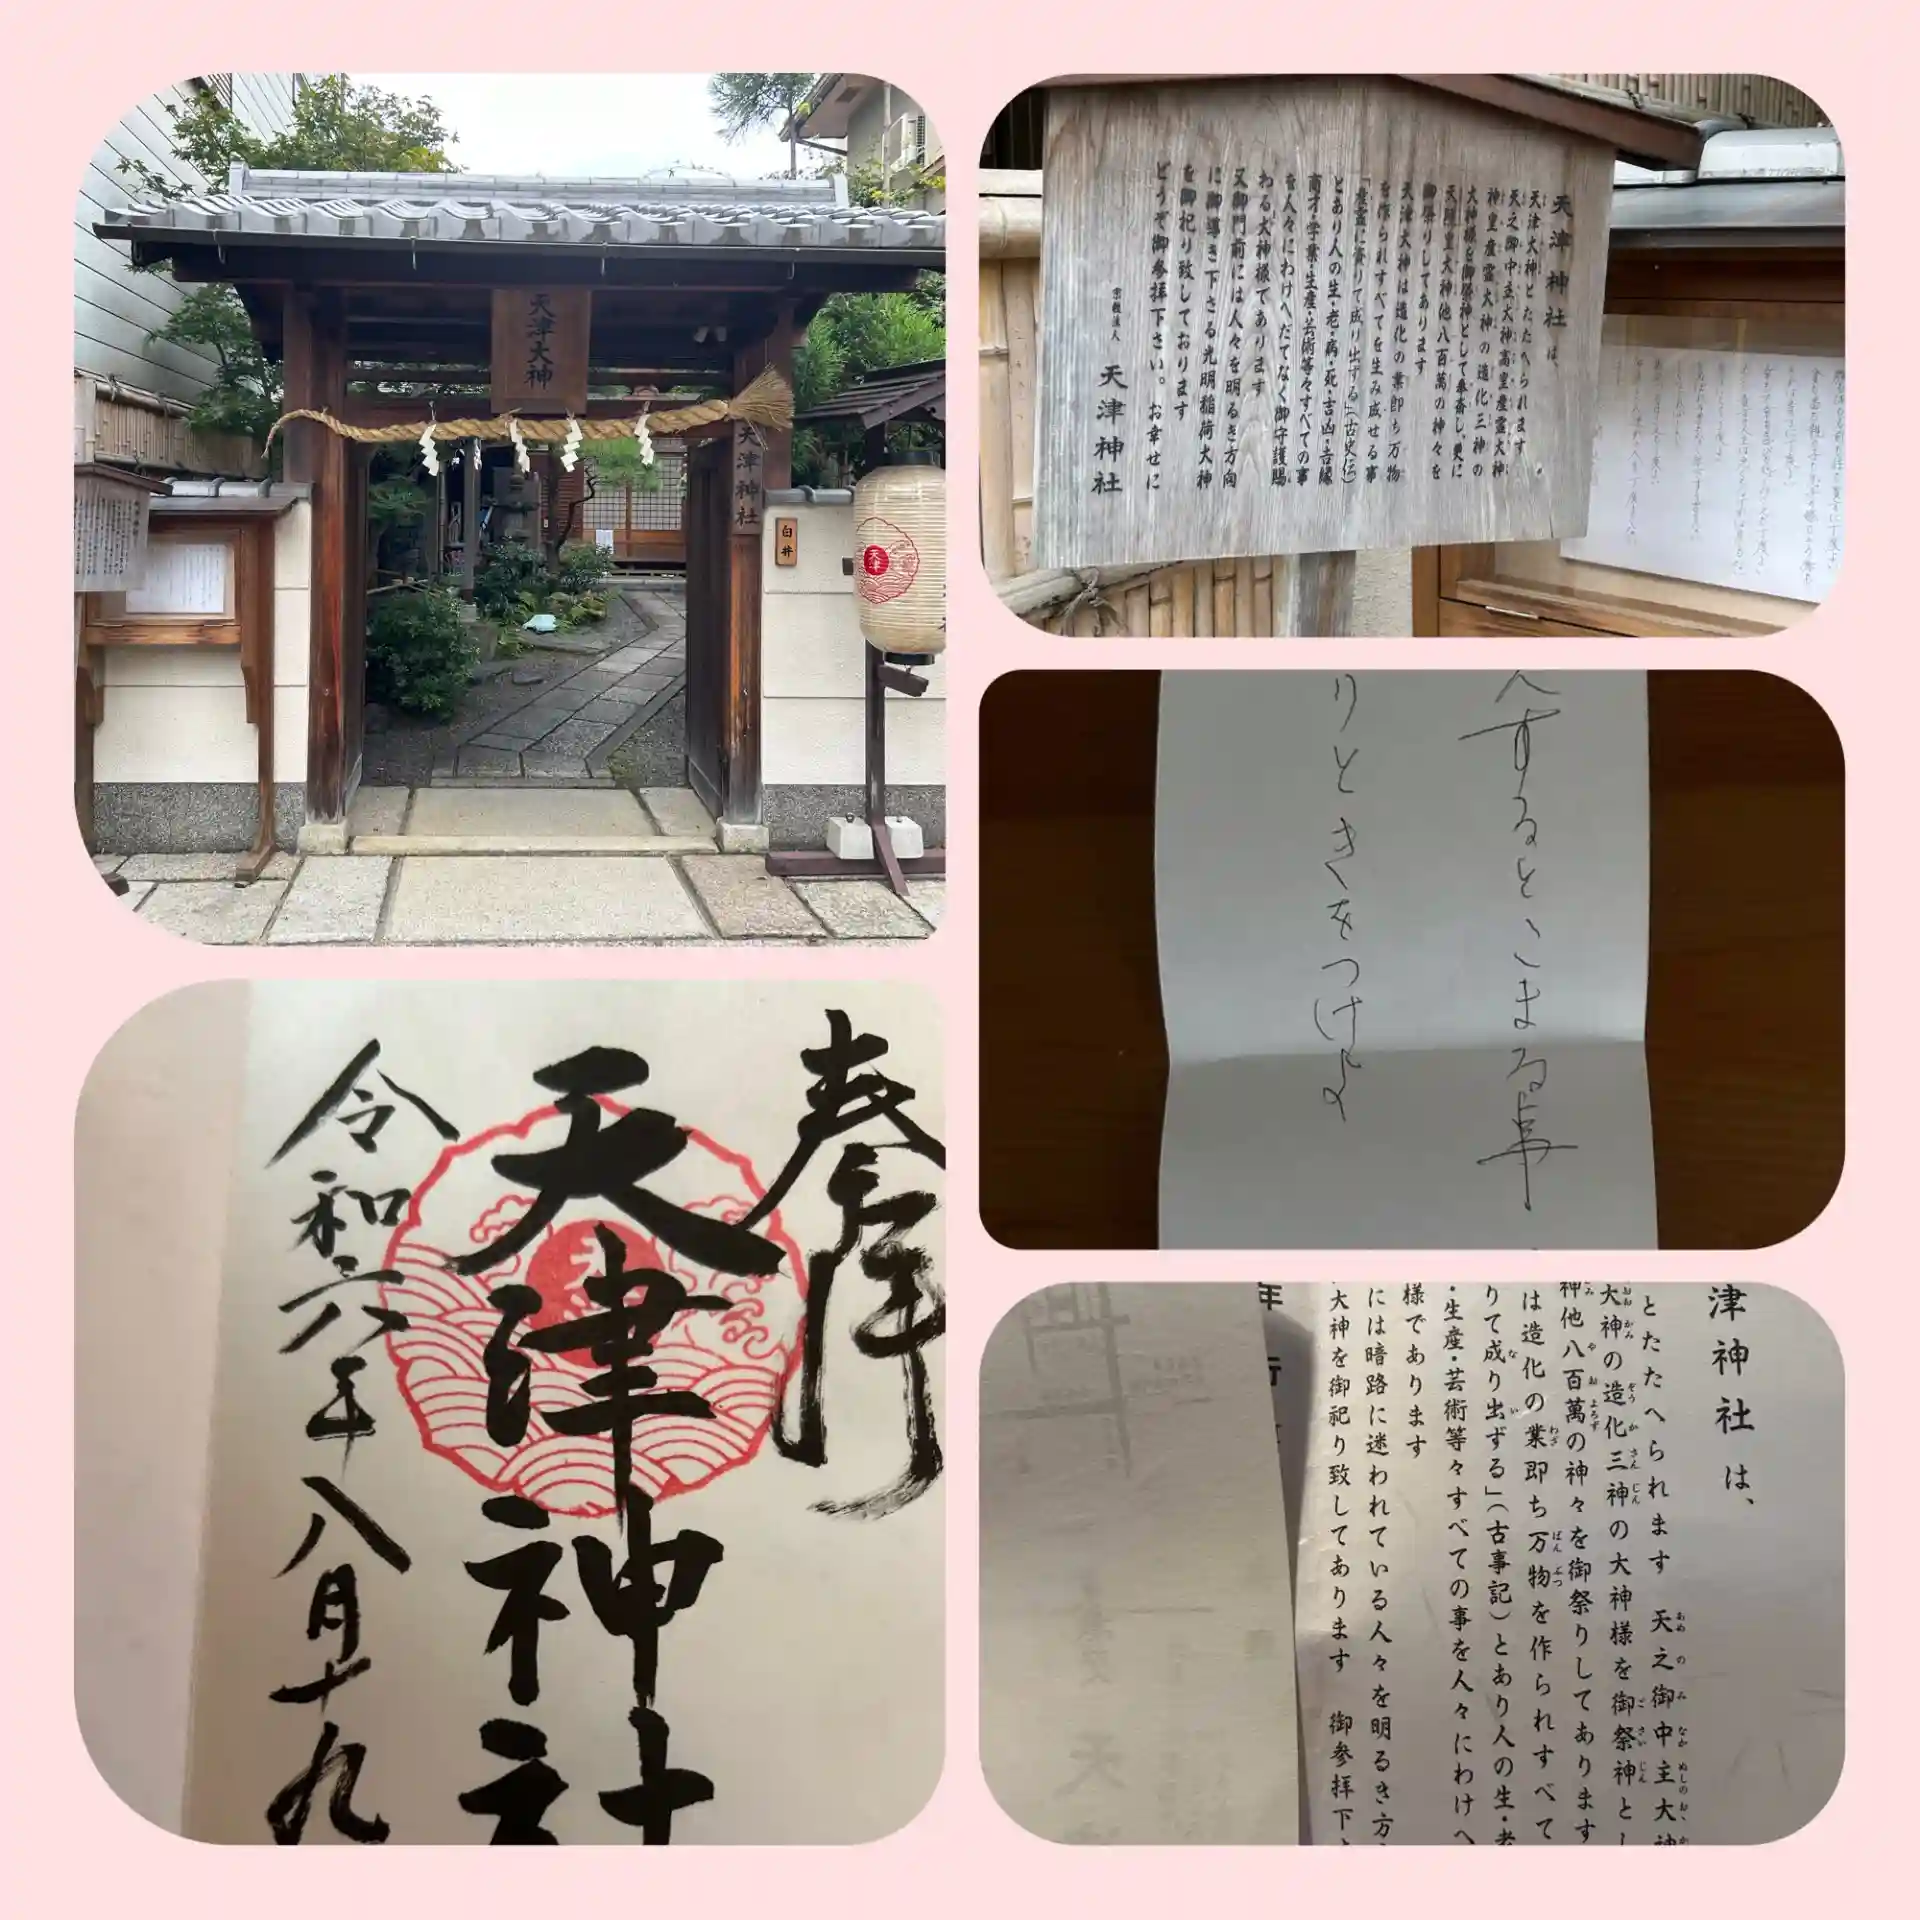 天津大神
天津神社
白井
天津
天津神社は、
天津大神とたたへられます
天之御中主大神高皇産霊大神
神皇産霊大神の造化三神の
大神様を御祭神として奉斎し、更に
御祭りしてあります
天津大神は造化の業即ち万物
を作られすべてを生み成せる事
「産霊に資りて成り出ずる」(古史伝)
とあり人の生・老・病・死・吉凶・吉縁
商才・学業・生産・芸術等々すべての事
を人々にわけへだてなく御守護賜
わる大神様であります
又御門前には人々を明るき方向
に御導き下さる光明稲荷大神
を御祀り致しております
どうぞ御参拝下さい。お幸せに
宗教法人 天津神社
んするとこまる事
りときをつけよ
奉拝
天津神社
令和六年八月十九
津神社は、
とたたへられます 天之御中主大神
大神の造化三神の大神様を御祭神とし
神他八百萬の神々を御祭りしてあります
は造化の業即ち万物を作られすべて
りて成り出ずる」(古事記)とあり人の生・老
・生産・芸術等々すべての事を人々にわけへ
様であります
には暗路に迷われている人々を明るき方
大神を御祀り致してあります 御参拝下